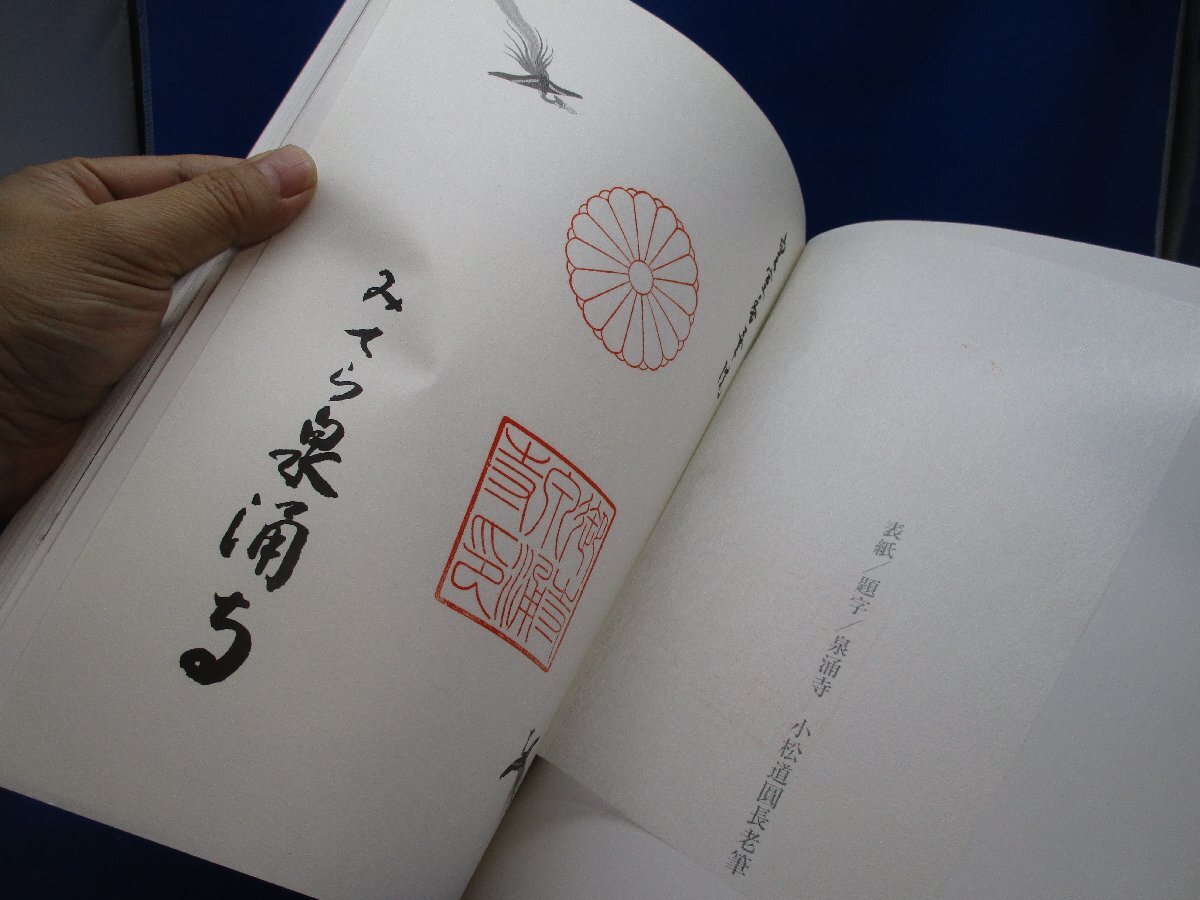 表紙／題字／泉涌寺　小松道圓長老筆
みてら泉涌寺